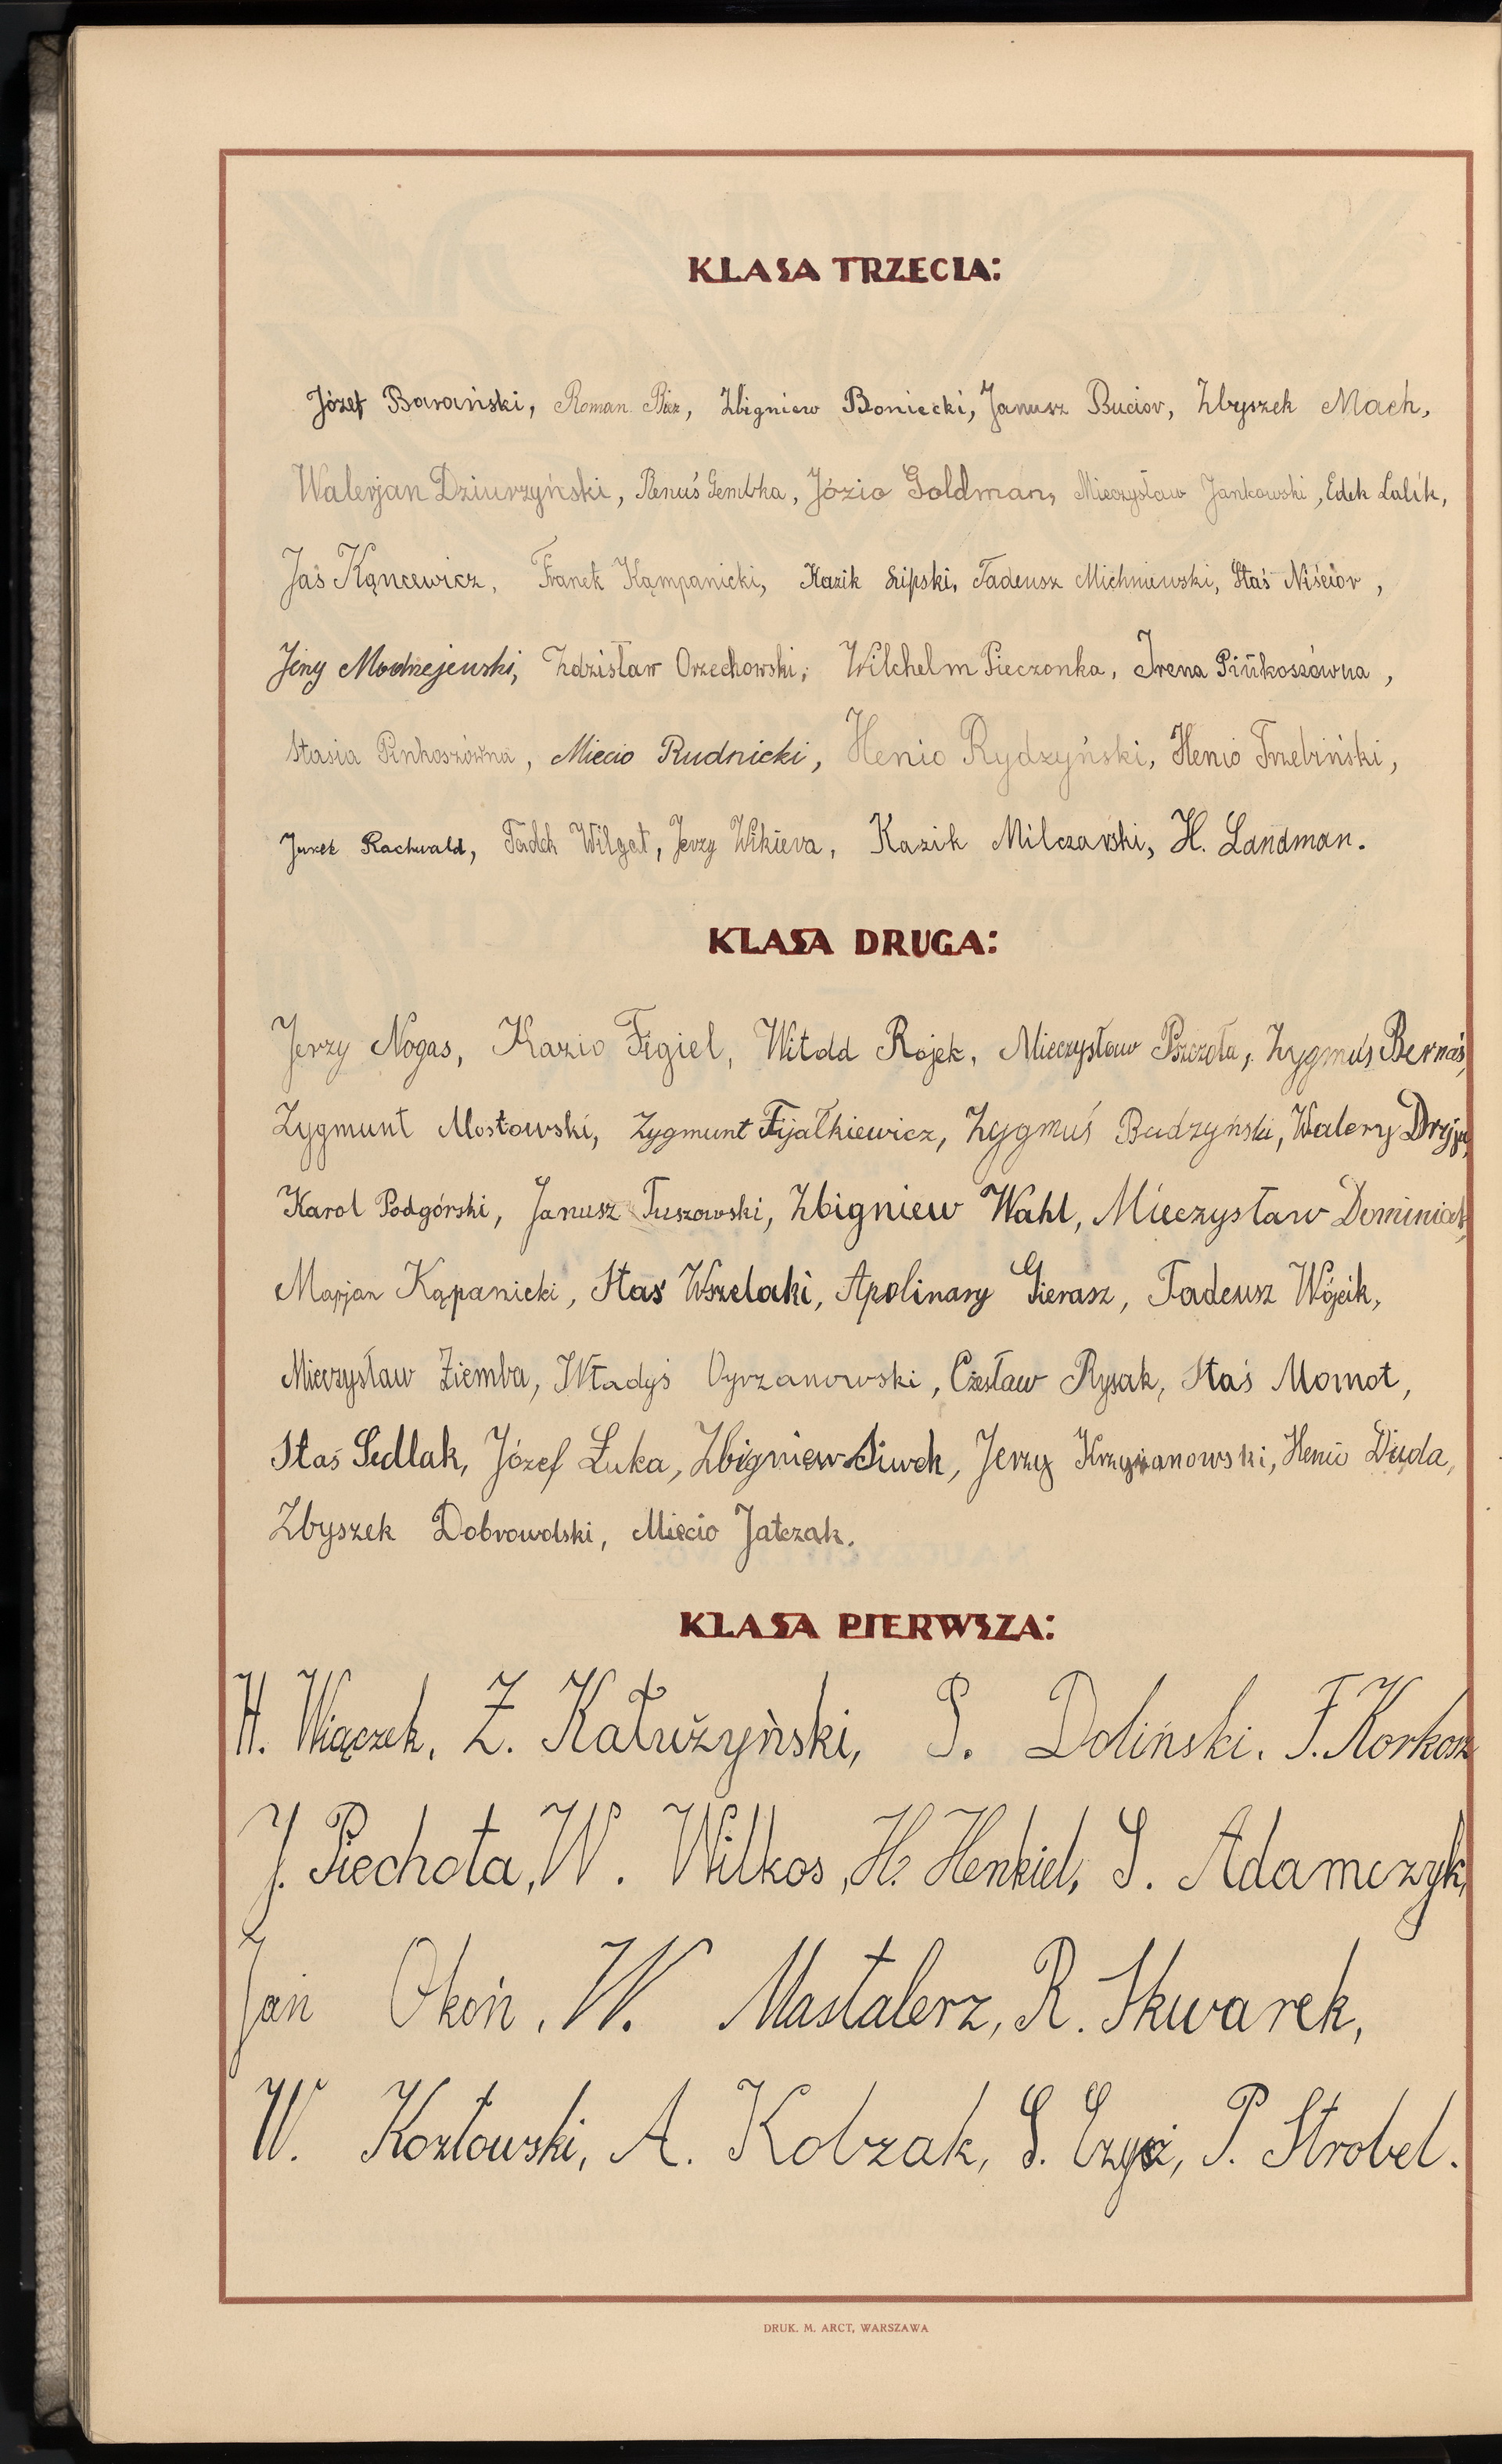 KLASA TRZECIA:
Józef Barański, Roman, Zbigniew Boniecki, Janusz Bucior, Zbyszek Mach,
Walerjan Dziurzyński, Benuś Gembka, Józio Goldman, Mieczysław Jankowski, Edek Lalik,
Jaś Kąncewicz, Franek Kąmpanicki, Kazik Lipski, Tadeusz Michniewski, Staś Niścior,
Jerzy Modrzejewski, Zdzisław Orzechowski, Wilchelm Pieczonka, Irena Pińkoszówna,
Stasia Pinkoszówna, Miecio Rudnicki, Henio Rydzyński, Henio Trzebiński,
Jurek Rachwald, Tadek Wilgat, Jerzy Wikieva, Kazik Milczarski, H. Landman.
KLASA DRUGA:
Jerzy Nogas, Kazio Figiel, Witold Rojek, Mieczysław Pszczoła, Zygmuś Bernaś,
Zygmunt Mostowski, Zygmunt Fijałkiewicz, Zygmuś Budzyński, Walery
Karol Podgórski, Janusz Tuszowski, Zbigniew Wahl, Mieczysław Dominiak,
Marjan Kąpanicki, Staś Wszelaki, Apolinary Gierasz, Tadeusz Wójcik,
Mieczysław Ziemba, Władyś Oyrzanowski, Czesław Rysak, Staś Momot,
Staś Sedlak, Józef Łuka, Zbigniew Siwek, Jerzy Krzyżanowski, Henio Duda,
Zbyszek Dobrowolski, Miecio Jatczak.
KLASA PIERWSZA:
H. Wiączek, Z. Kałużyński, S. Doliński, F. Korkosz
J. Piechota, W. Wilkos, H. Henkiel, S. Adamczyk,
Jan Okoń, W. Mastalerz, R. Skwarek,
W. Kozłowski, A. Kobzak, S. Czyż, P. Strobel.
DRUK. M. ARCT, WARSZAWA